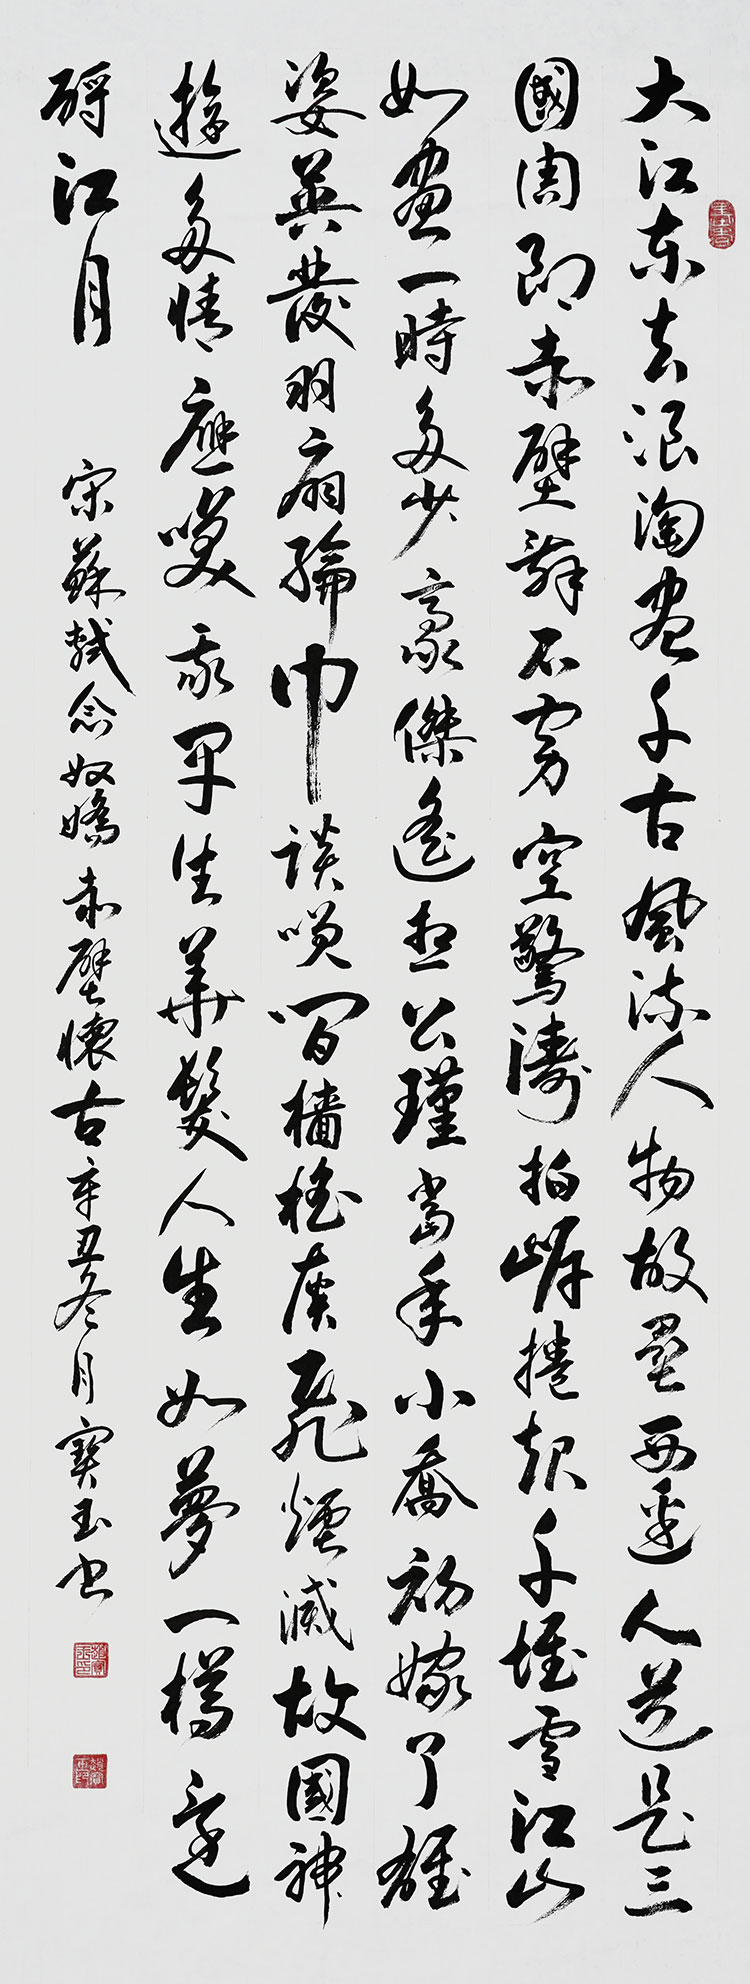 大江東去浪淘盡千古風流人物故壘西邊人道是三
國周郎赤壁亂石穿空驚濤拍岸捲起千堆雪江山
如畫一時多少豪傑遙想公瑾當年小喬初嫁了雄
姿英發羽扇綸巾談咲間檣櫓灰飛煙滅故國神
遊多情應咲我早生華髮人生如夢一樽還
酹江月 宋蘇軾念奴嬌赤壁懷古辛丑冬月寶玉书